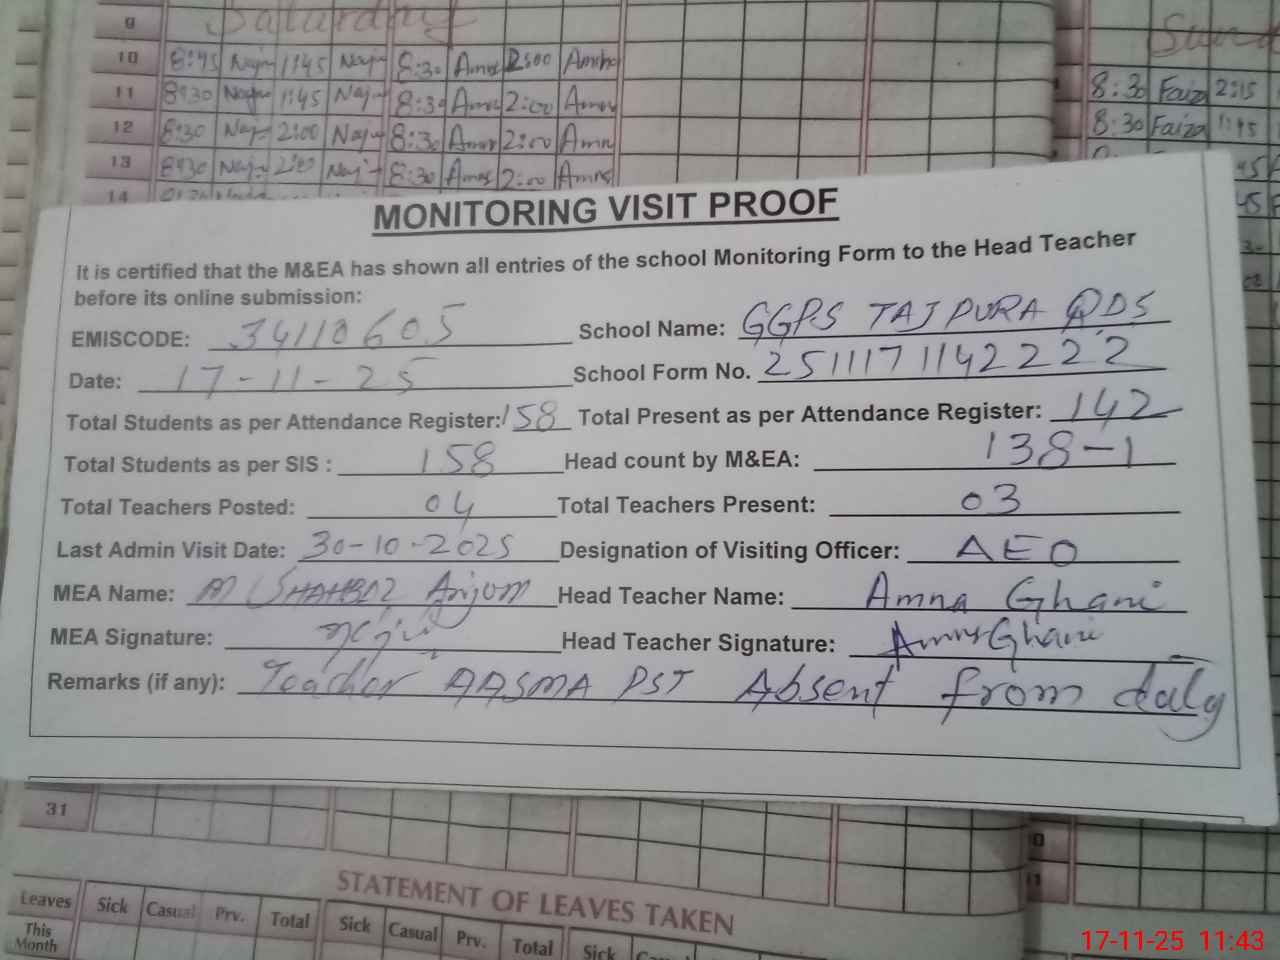 9 Saturday
10 8:45 Najm 1:45 Najm 8:30 Amna 2:00 Amna
11 8:30 Najm 1:45 Najm 8:30 Amna 2:00 Amna
12 8:30 Najm 2:00 Najm 8:30 Amna 2:00 Amna
13 8:30 Najm 2:00 Najm 8:30 Amna 2:00 Amna
14
8:30 Faiza 2:15
8:30 Faiza 1:45
MONITORING VISIT PROOF
It is certified that the M&EA has shown all entries of the school Monitoring Form to the Head Teacher
before its online submission:
EMISCODE: 34110605 School Name: GGPS TAJPURA QDS
Date: 17-11-25 School Form No. 2511171142222
Total Students as per Attendance Register: 158 Total Present as per Attendance Register: 142
Total Students as per SIS : 158 Head count by M&EA: 138-1
Total Teachers Posted: 04 Total Teachers Present: 03
Last Admin Visit Date: 30-10-2025 Designation of Visiting Officer: AEO
MEA Name: M SHAHBAZ Anjum Head Teacher Name: Amna Ghani
MEA Signature: Head Teacher Signature: Amna Ghani
Remarks (if any): Teacher AASMA PST Absent from daly
31
STATEMENT OF LEAVES TAKEN
Leaves Sick Casual Prv. Total Sick Casual Prv. Total Sick
This
Month
17-11-25 11:43